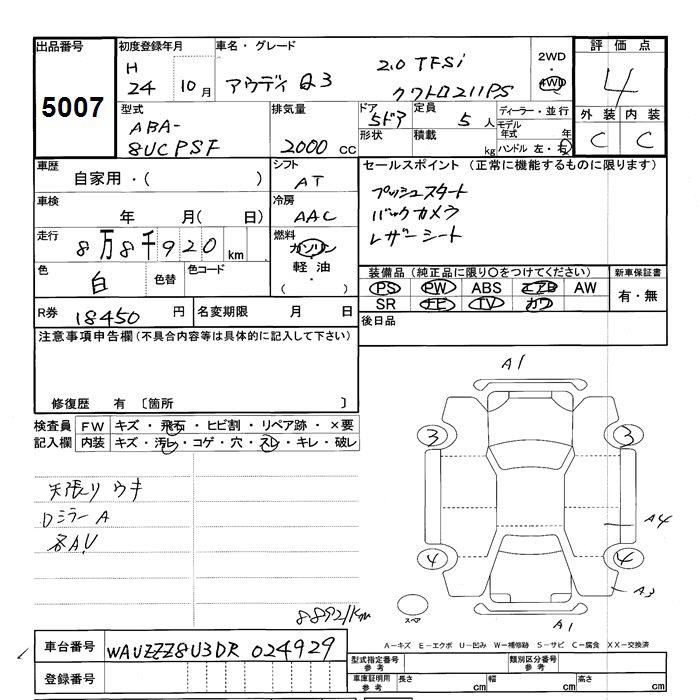 出品番号 初度登録年月 車名・グレード 2WD 評価点
5007 H 24 10月 アウディ Q3 2.0 TFSi ・ 4
クワトロ211PS 4WD
型式 排気量 ドア 定員 ディーラー・並行 外装 内装
ABA- 5ドア 5人 モデル年式 年 C C
8UCPSF 2000 cc 形状 積載 kg ハンドル 左・右
車歴 シフト セールスポイント (正常に機能するものに限ります)
自家用・( ) AT プッシュスタート
車検 冷房 バックカメラ
年 月( 日) AAC レザーシート
走行 燃料
8万8千920 km ガソリン
色 色替 色コード 軽油 装備品(純正品に限り○をつけてください) 新車保証書
白 ・ ( ・ ) PS PW ABS エアB AW 有・無
SR ナビ TV カワ
R券 18450 円 名変期限 月 日 後日品
注意事項申告欄(不具合内容等は具体的に記入して下さい)
修復歴 有 〔箇所 〕
検査員 FW キズ・飛石・ヒビ割・リペア跡・×要
記入欄 内装 キズ・汚レ・コゲ・穴・スレ・キレ・破レ
天張り ウキ
Dミラー A
各A.U
88921km
A1
3 3
A4
4 4
A3
スペア A1
A=キズ E=エクボ U=凹み W=補修跡 S=サビ C=腐食 XX=交換済
車台番号 WAUZZZ8U3DR024929
登録番号
型式指定番号 参考 類別区分番号 参考
車庫証明用 参考 長さ cm 幅 cm 高さ cm